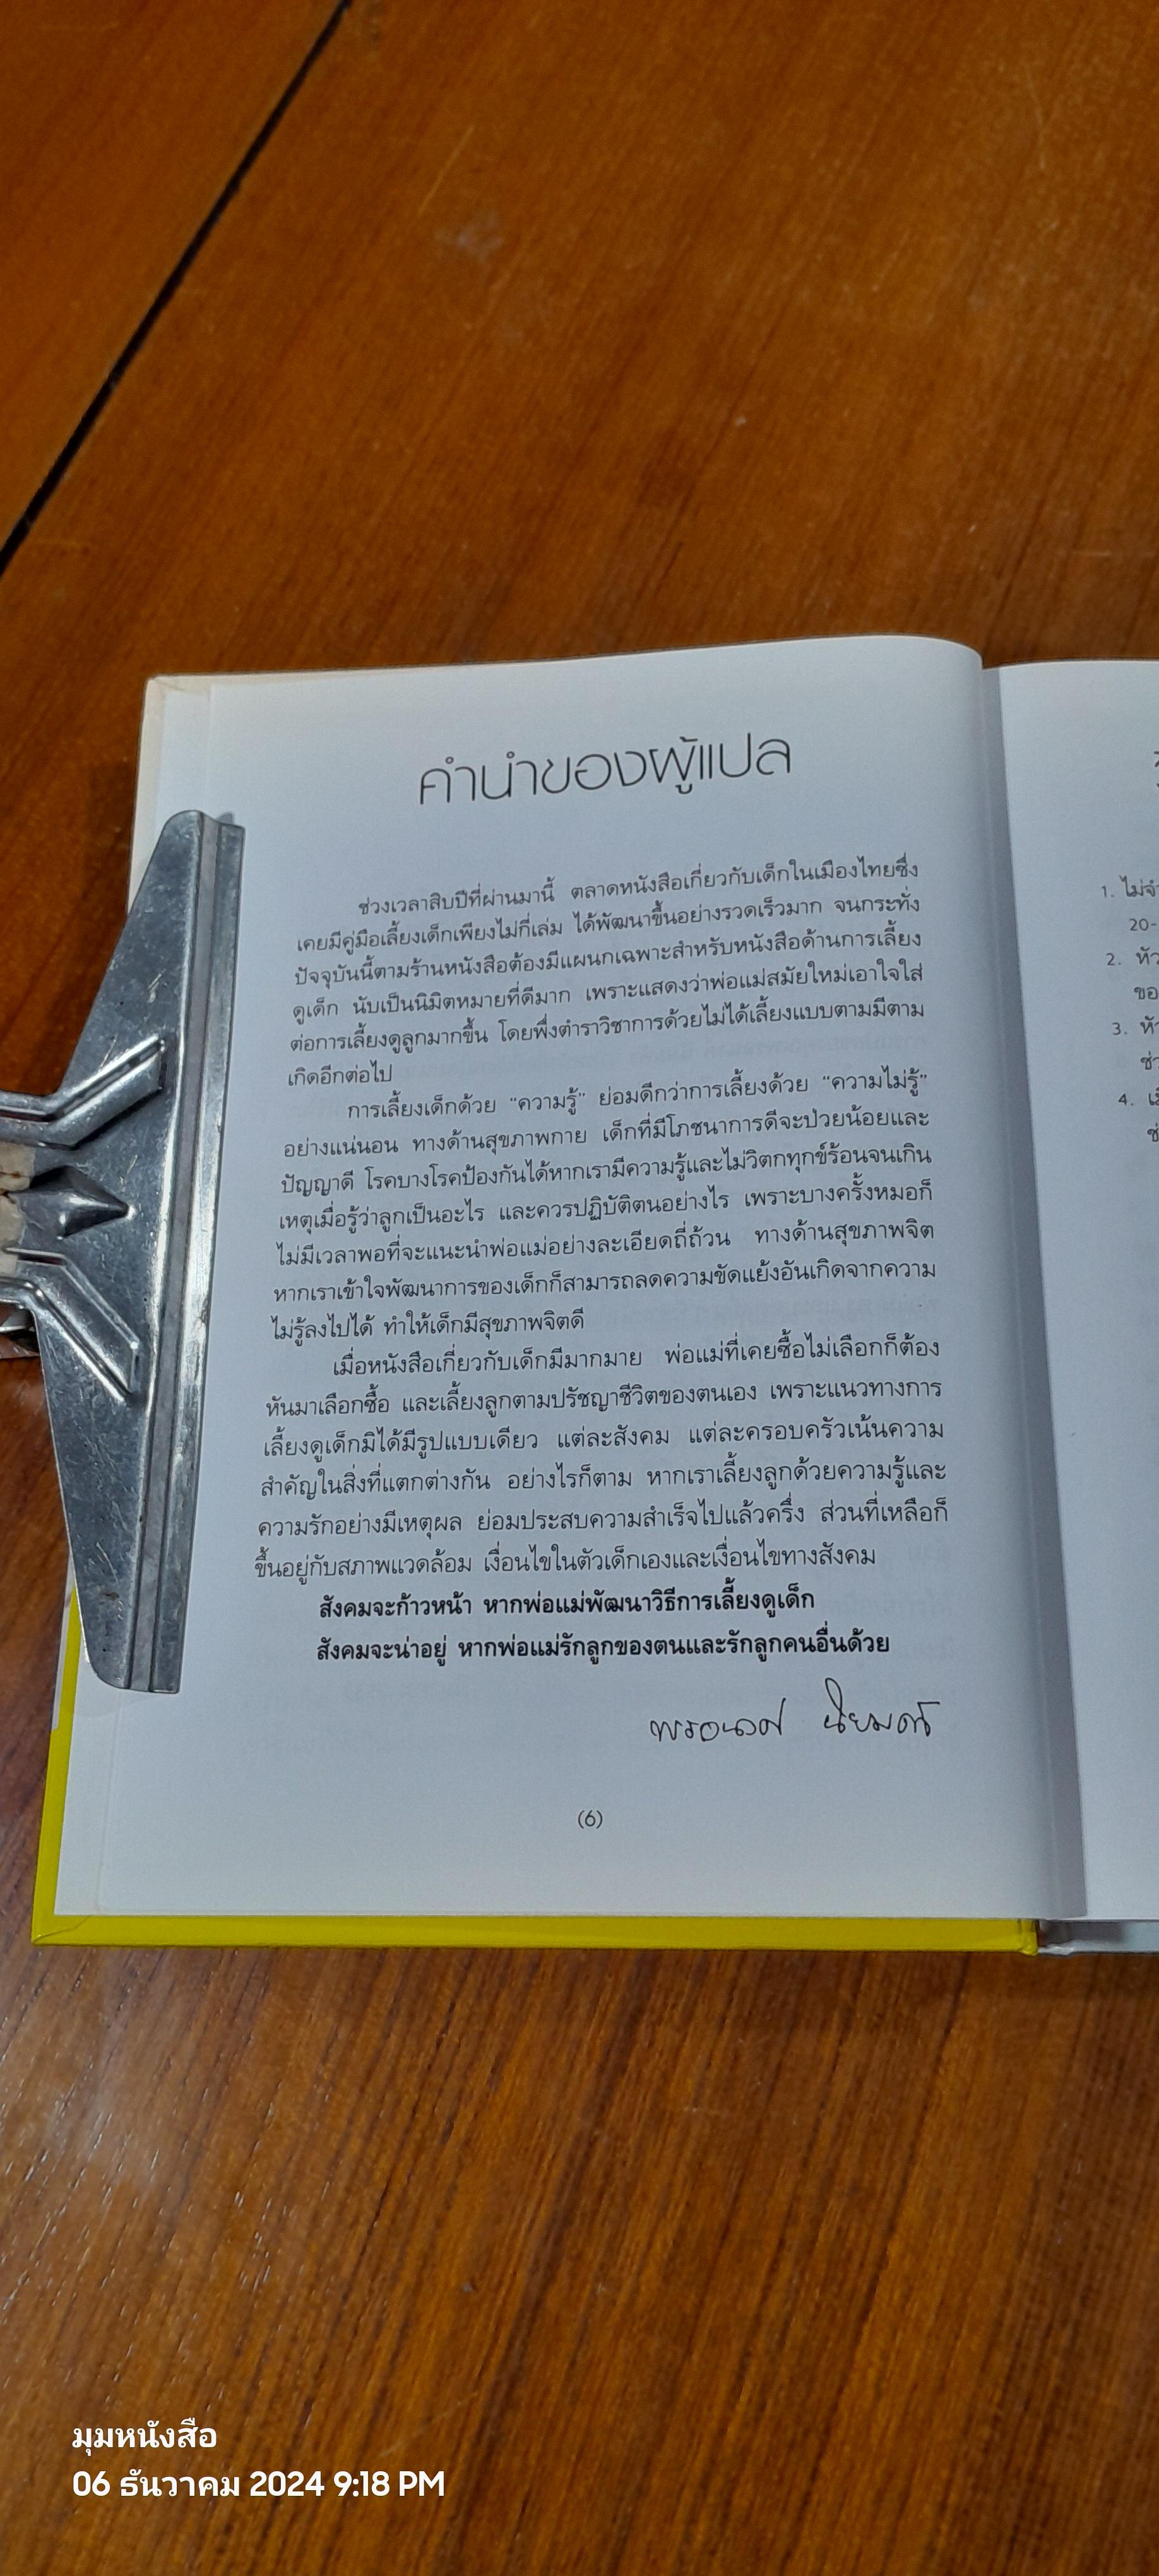 คำนำของผู้แปล
ช่วงเวลาสิบปีที่ผ่านมานี้ ตลาดหนังสือเกี่ยวกับเด็กในเมืองไทยซึ่ง
เคยมีคู่มือเลี้ยงเด็กเพียงไม่กี่เล่ม ได้พัฒนาขึ้นอย่างรวดเร็วมาก จนกระทั่ง
ปัจจุบันนี้ตามร้านหนังสือต้องมีแผนกเฉพาะสำหรับหนังสือด้านการเลี้ยง
ดูเด็ก นับเป็นนิมิตหมายที่ดีมาก เพราะแสดงว่าพ่อแม่สมัยใหม่เอาใจใส่
ต่อการเลี้ยงดูลูกมากขึ้น โดยพึ่งตำราวิชาการด้วยไม่ได้เลี้ยงแบบตามมีตาม
เกิดอีกต่อไป
การเลี้ยงเด็กด้วย “ความรู้” ย่อมดีกว่าการเลี้ยงด้วย “ความไม่รู้”
อย่างแน่นอน ทางด้านสุขภาพกาย เด็กที่มีโภชนาการดีจะป่วยน้อยและ
ปัญญาดี โรคบางโรคป้องกันได้หากเรามีความรู้และไม่วิตกทุกข์ร้อนจนเกิน
เหตุเมื่อรู้ว่าลูกเป็นอะไร และควรปฏิบัติตนอย่างไร เพราะบางครั้งหมอก็
ไม่มีเวลาพอที่จะแนะนำพ่อแม่อย่างละเอียดถี่ถ้วน ทางด้านสุขภาพจิต
หากเราเข้าใจพัฒนาการของเด็กก็สามารถลดความขัดแย้งอันเกิดจากความ
ไม่รู้ลงไปได้ ทำให้เด็กมีสุขภาพจิตดี
เมื่อหนังสือเกี่ยวกับเด็กมีมากมาย พ่อแม่ที่เคยซื้อไม่เลือกก็ต้อง
หันมาเลือกซื้อ และเลี้ยงลูกตามปรัชญาชีวิตของตนเอง เพราะแนวทางการ
เลี้ยงดูเด็กมิได้มีรูปแบบเดียว แต่ละสังคม แต่ละครอบครัวเน้นความ
สำคัญในสิ่งที่แตกต่างกัน อย่างไรก็ตาม หากเราเลี้ยงลูกด้วยความรู้และ
ความรักอย่างมีเหตุผล ย่อมประสบความสำเร็จไปแล้วครึ่ง ส่วนที่เหลือก็
ขึ้นอยู่กับสภาพแวดล้อม เงื่อนไขในตัวเด็กเองและเงื่อนไขทางสังคม
สังคมจะก้าวหน้า หากพ่อแม่พัฒนาวิธีการเลี้ยงดูเด็ก
สังคมจะน่าอยู่ หากพ่อแม่รักลูกของตนและรักลูกคนอื่นด้วย
(6)
1. ไม่จำ
20-
2. หัว
ขอ
3. หัว
ช่ว
4.
ช่
มุมหนังสือ
06 ธันวาคม 2024 9:18 PM